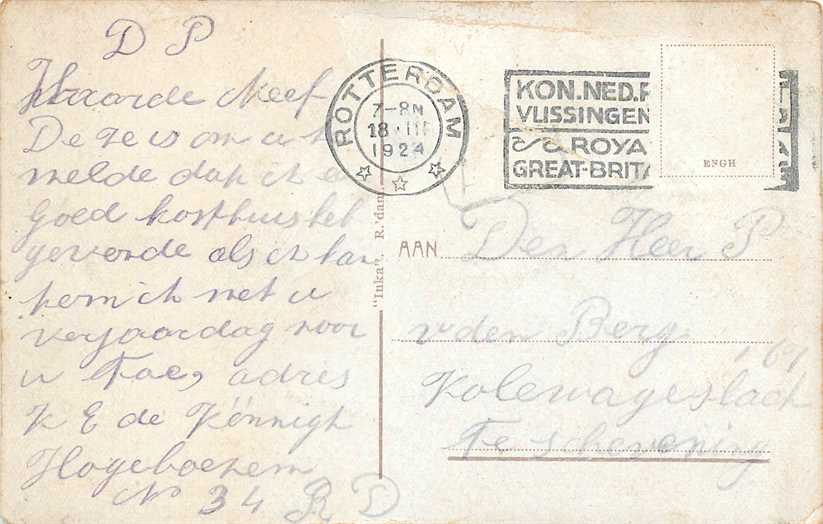 D P
Waarde Neef
Deze is om u t
melde dap ik e
goed kosthuis heb
gevonde als ik kan
kom ik met u
verjaardag voor
u Toes adres
K E de Könnigh
Hogeboezem
No 34 R D
"Inka". R.'dam
ROTTERDAM
7-8 NM
18 III
1924
KON.NED.P
VLISSINGEN
ROYA
GREAT-BRITA
ENGH
AAN Den Heer P
v den Berg
Kolewageslach 167
Te Schevening